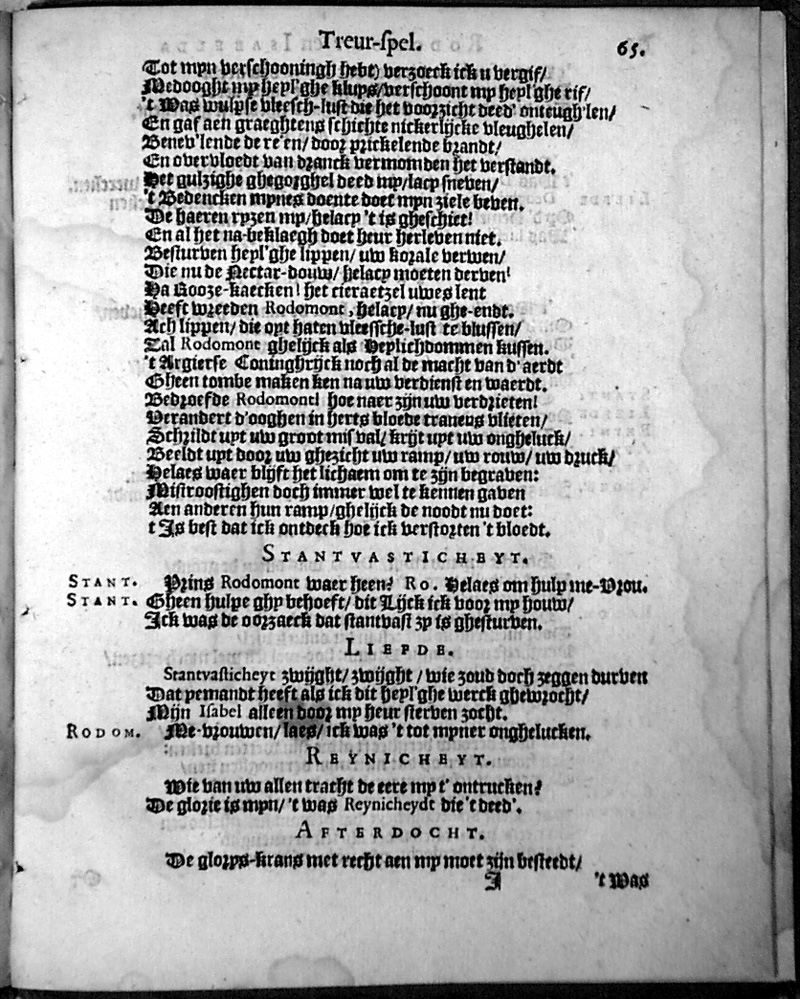 Treur-spel. 65.
Tot myn verschooningh hebt) verzoeck ick u vergif/
Medooght my heyl'ghe kluys/verschoont my heyl'ghe rif/
't Was wulpse vleesch-lust die het voorzicht deed' onteugh'len/
En gaf aen graeghtens schichte nickerlijcke vleughelen/
Benev'lende de re'en/ door prickelende brandt/
En overvloedt van dranck vermomden het verstandt.
Het gulzighe ghegorghel deed my/lacy sneven/
't Bedencken mynes doente doet myn ziele beven.
De haeren ryzen my/helacy 't is gheschiet!
En al het na-beklaegh doet heur herleven niet.
Besturven heyl'ghe lippen/ uw korale verwen/
Die nu de Nectar-douw/ helacy moeten derven!
Ha Rooze-kaecken! het cieraetzel uwes lent
Heeft wreeden Rodomont, helacy/ nu ghe-endt.
Ach lippen/ die oyt haten vleessche-lust te blussen/
Zal Rodomont ghelijck als Heylichdommen kussen.
't Argierse Coninghrijck noch al de macht van d'aerdt
Gheen tombe maken ken na uw verdienst en waerdt.
Bedroefde Rodomont! hoe naer zijn uw verdrieten!
Verandert d'ooghen in herts bloede tranens vlieten/
Schrildt uyt uw groot misval/ krijt uyt uw ongheluck/
Beeldt uyt door uw ghezicht uw ramp/ uw rouw/ uw druck/
Helaes waer blijft het lichaem om te zijn begraven:
Mistroostighen doch immer wel te kennen gaven
Aen anderen hun ramp/ghelijck de noodt nu doet:
t Is best dat ick ontdeck hoe ick verstorten 't bloedt.
STANTVASTICHEYT.
STANT. Prins Rodomont waer heen? Ro. Helaes om hulp me-Vrou.
STANT. Gheen hulpe ghy behoeft/ dit Lijck ick voor my houw/
Ick was de oorzaeck dat stantvast zy is ghesturven.
LIEFDE.
Stantvasticheyt zwijght/ zwijght / wie zoud doch zeggen durven
Dat yemandt heeft als ick dit heyl'ghe werck ghewrocht/
Mijn Isabel alleen door my heur sterven zocht.
RODOM. Me-vrouwen/ laes/ ick was 't tot myner onghelucken.
REYNICHEYT.
Wie van uw allen tracht de eere my t' ontrucken?
De glorie is myn/ 't was Reynicheydt die 't deed'.
AFTERDOCHT.
De glorys-krans met recht aen my moet zijn besteedt/
I 't Was